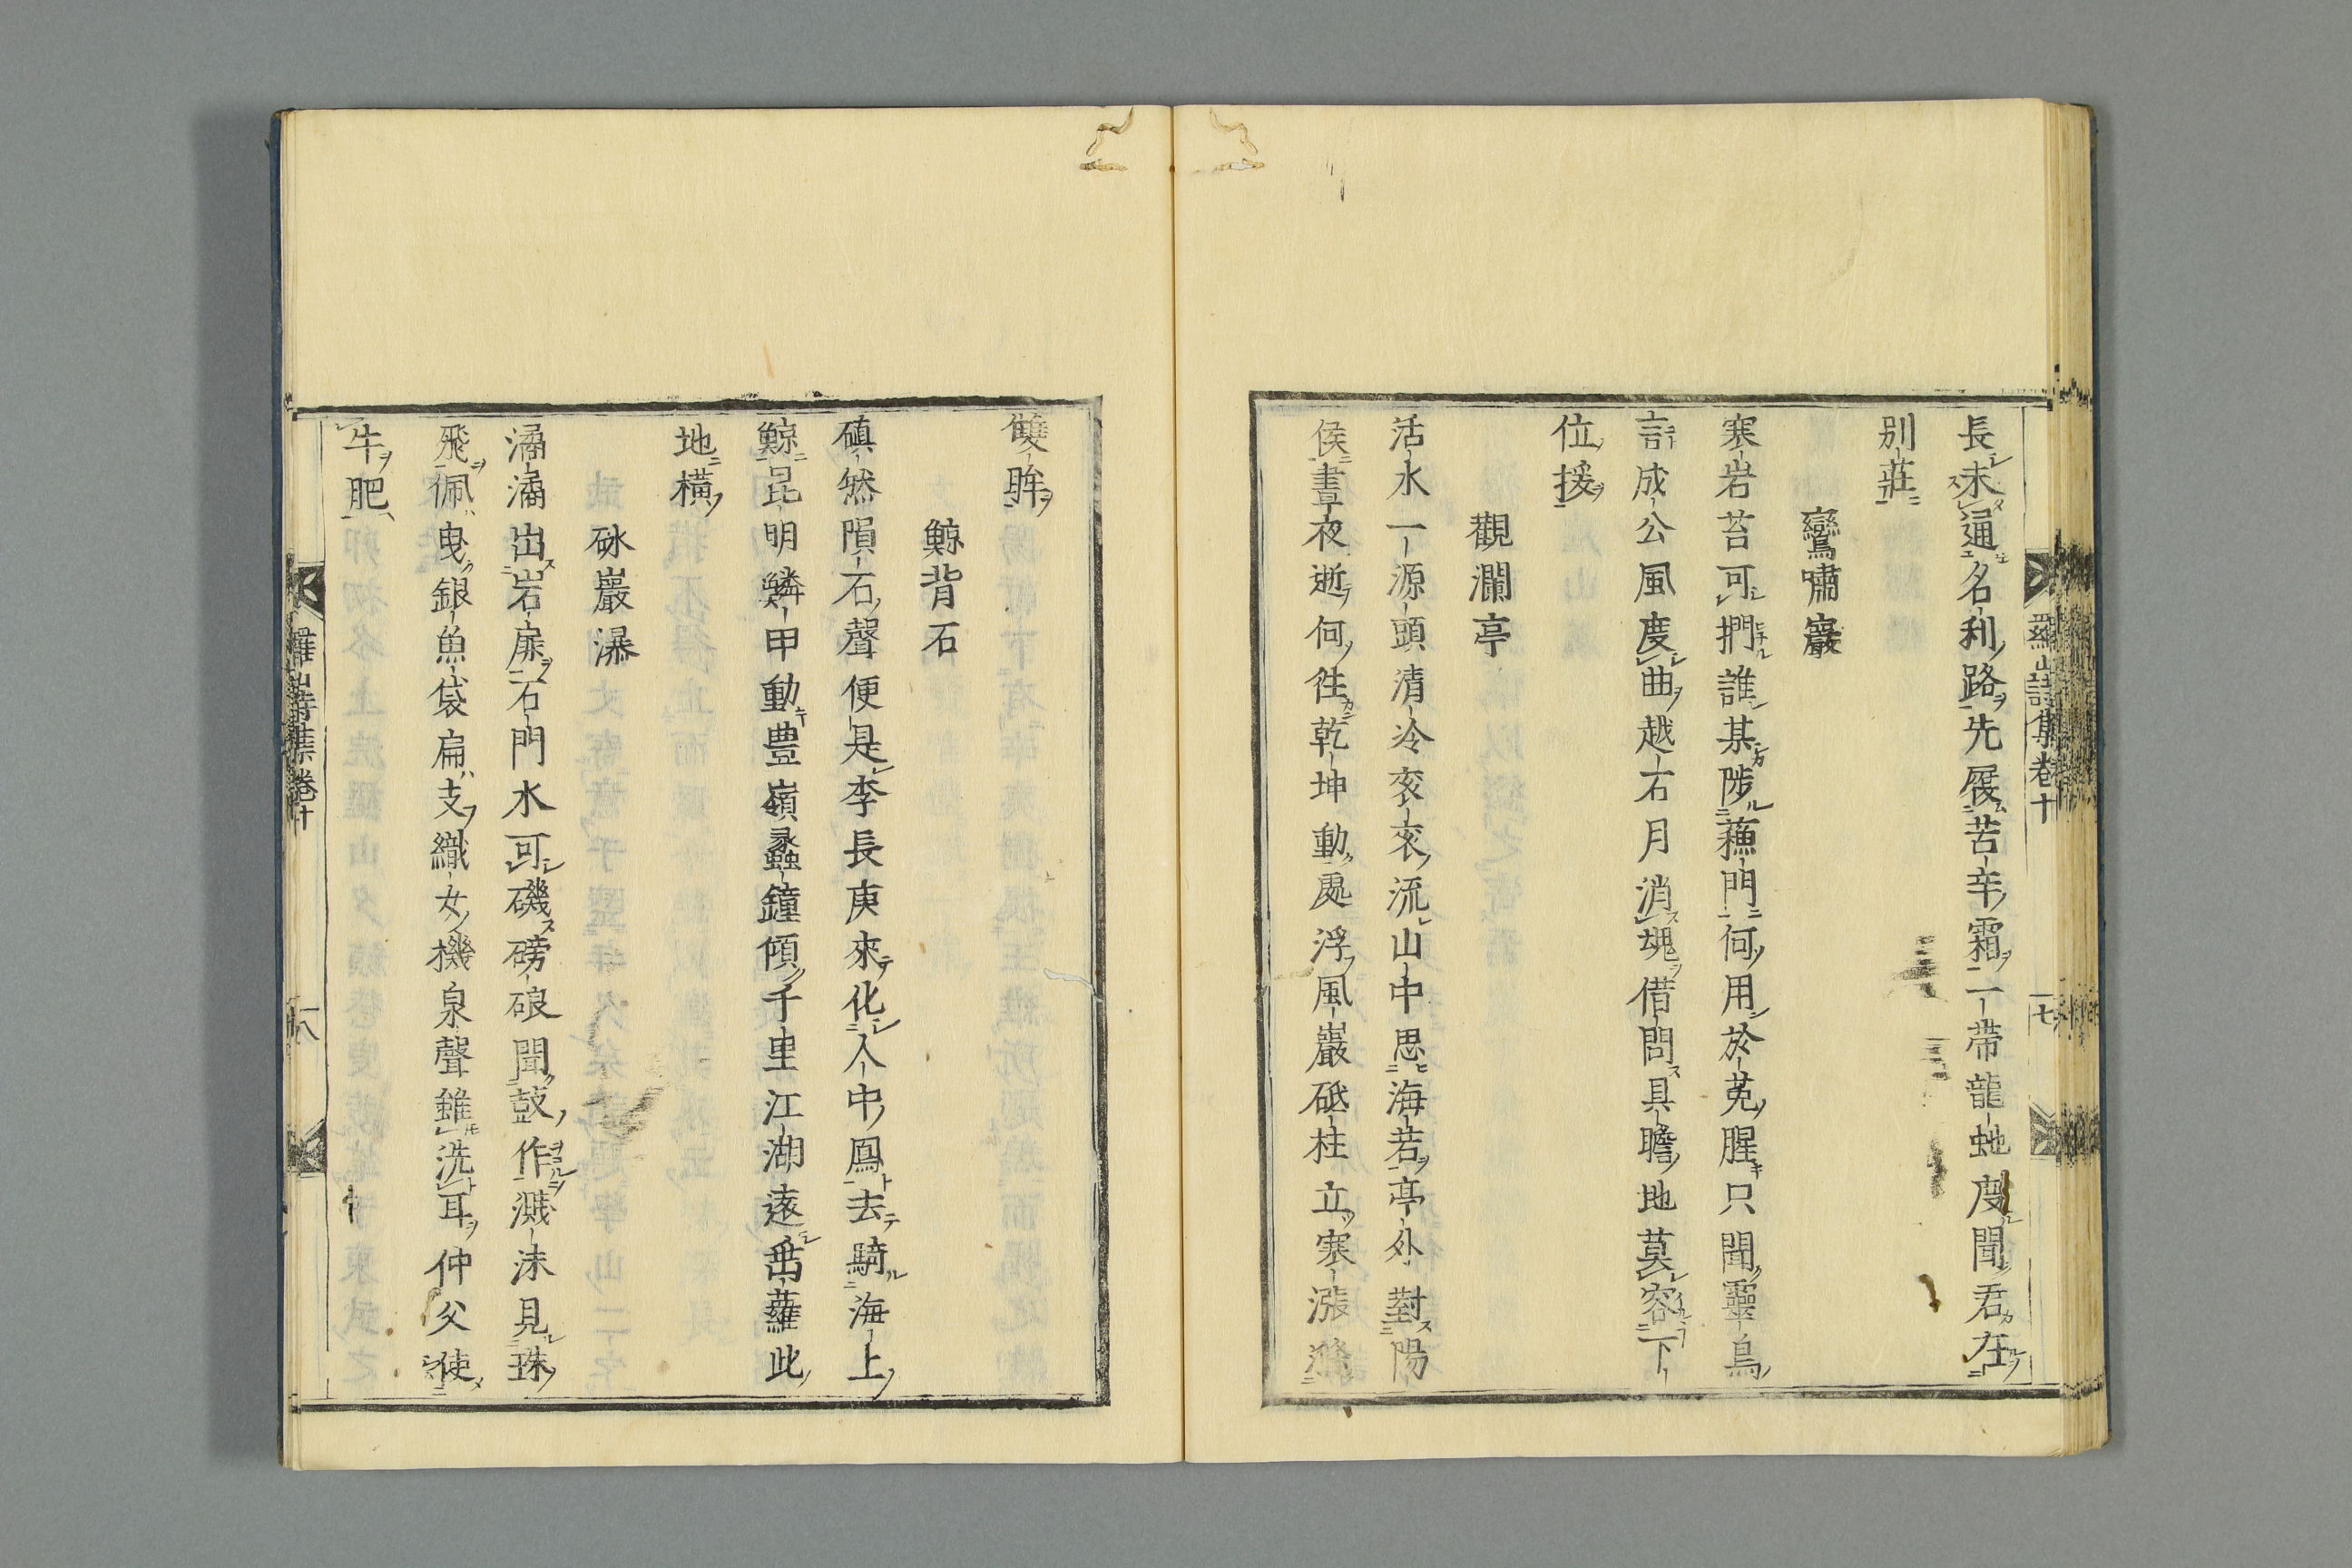 羅山詩集卷十
十七
長未通名利路先履苦辛霜一帶龍虵度聞君在
別莊
鸞嘯巖
寒岩苔可捫誰某陟蘓門何用於菟腥只聞靈烏
言成公風度曲越石月消魂借問具瞻地莫容下
位援
觀瀾亭
活水一源頭清冷衮衮流山中思海若亭外對陽
侯晝夜逝何徃乾坤動處浮風巖砥柱立寒漲
雙眸
鯨背石
磌然隕石聲便是李長庚來化人中鳳去騎海上
鯨昆明鱗甲動豊嶺蠡鐘傾千里江湖遠喬蘿此
地橫
砯巖瀑
潏潏出岩扉石門水可磯磅硠聞鼓作濺沫見珠
飛佩曳銀魚袋扁支織女機泉聲雖洗耳仲父使
牛肥
羅山詩集卷十
十八